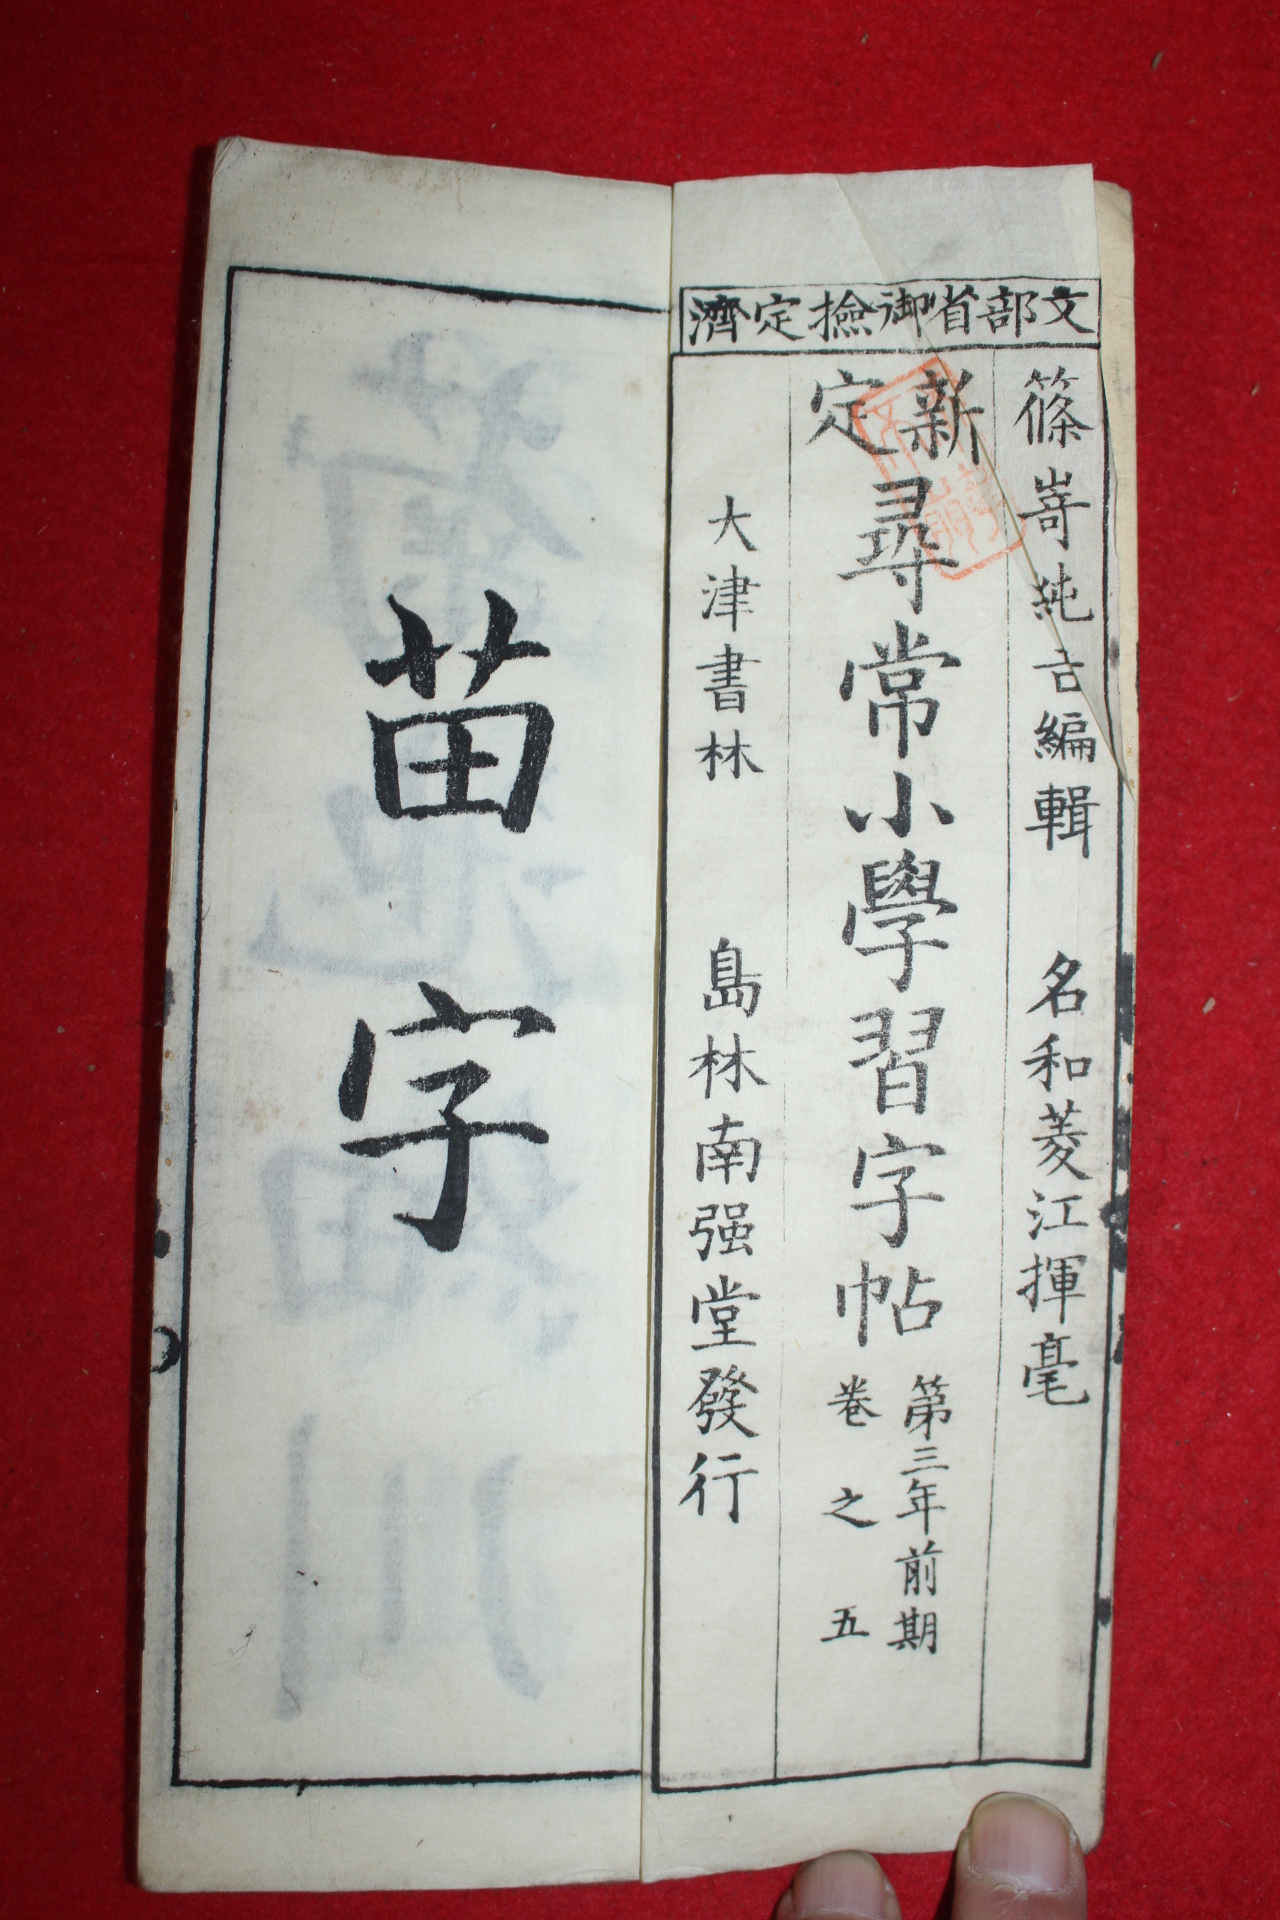 文部省御撿定濟
篠嵜純吉編輯　名和菱江揮毫
新定尋常小學習字帖
第三年前期
卷之五
大津書林　島林南强堂發行
苗字